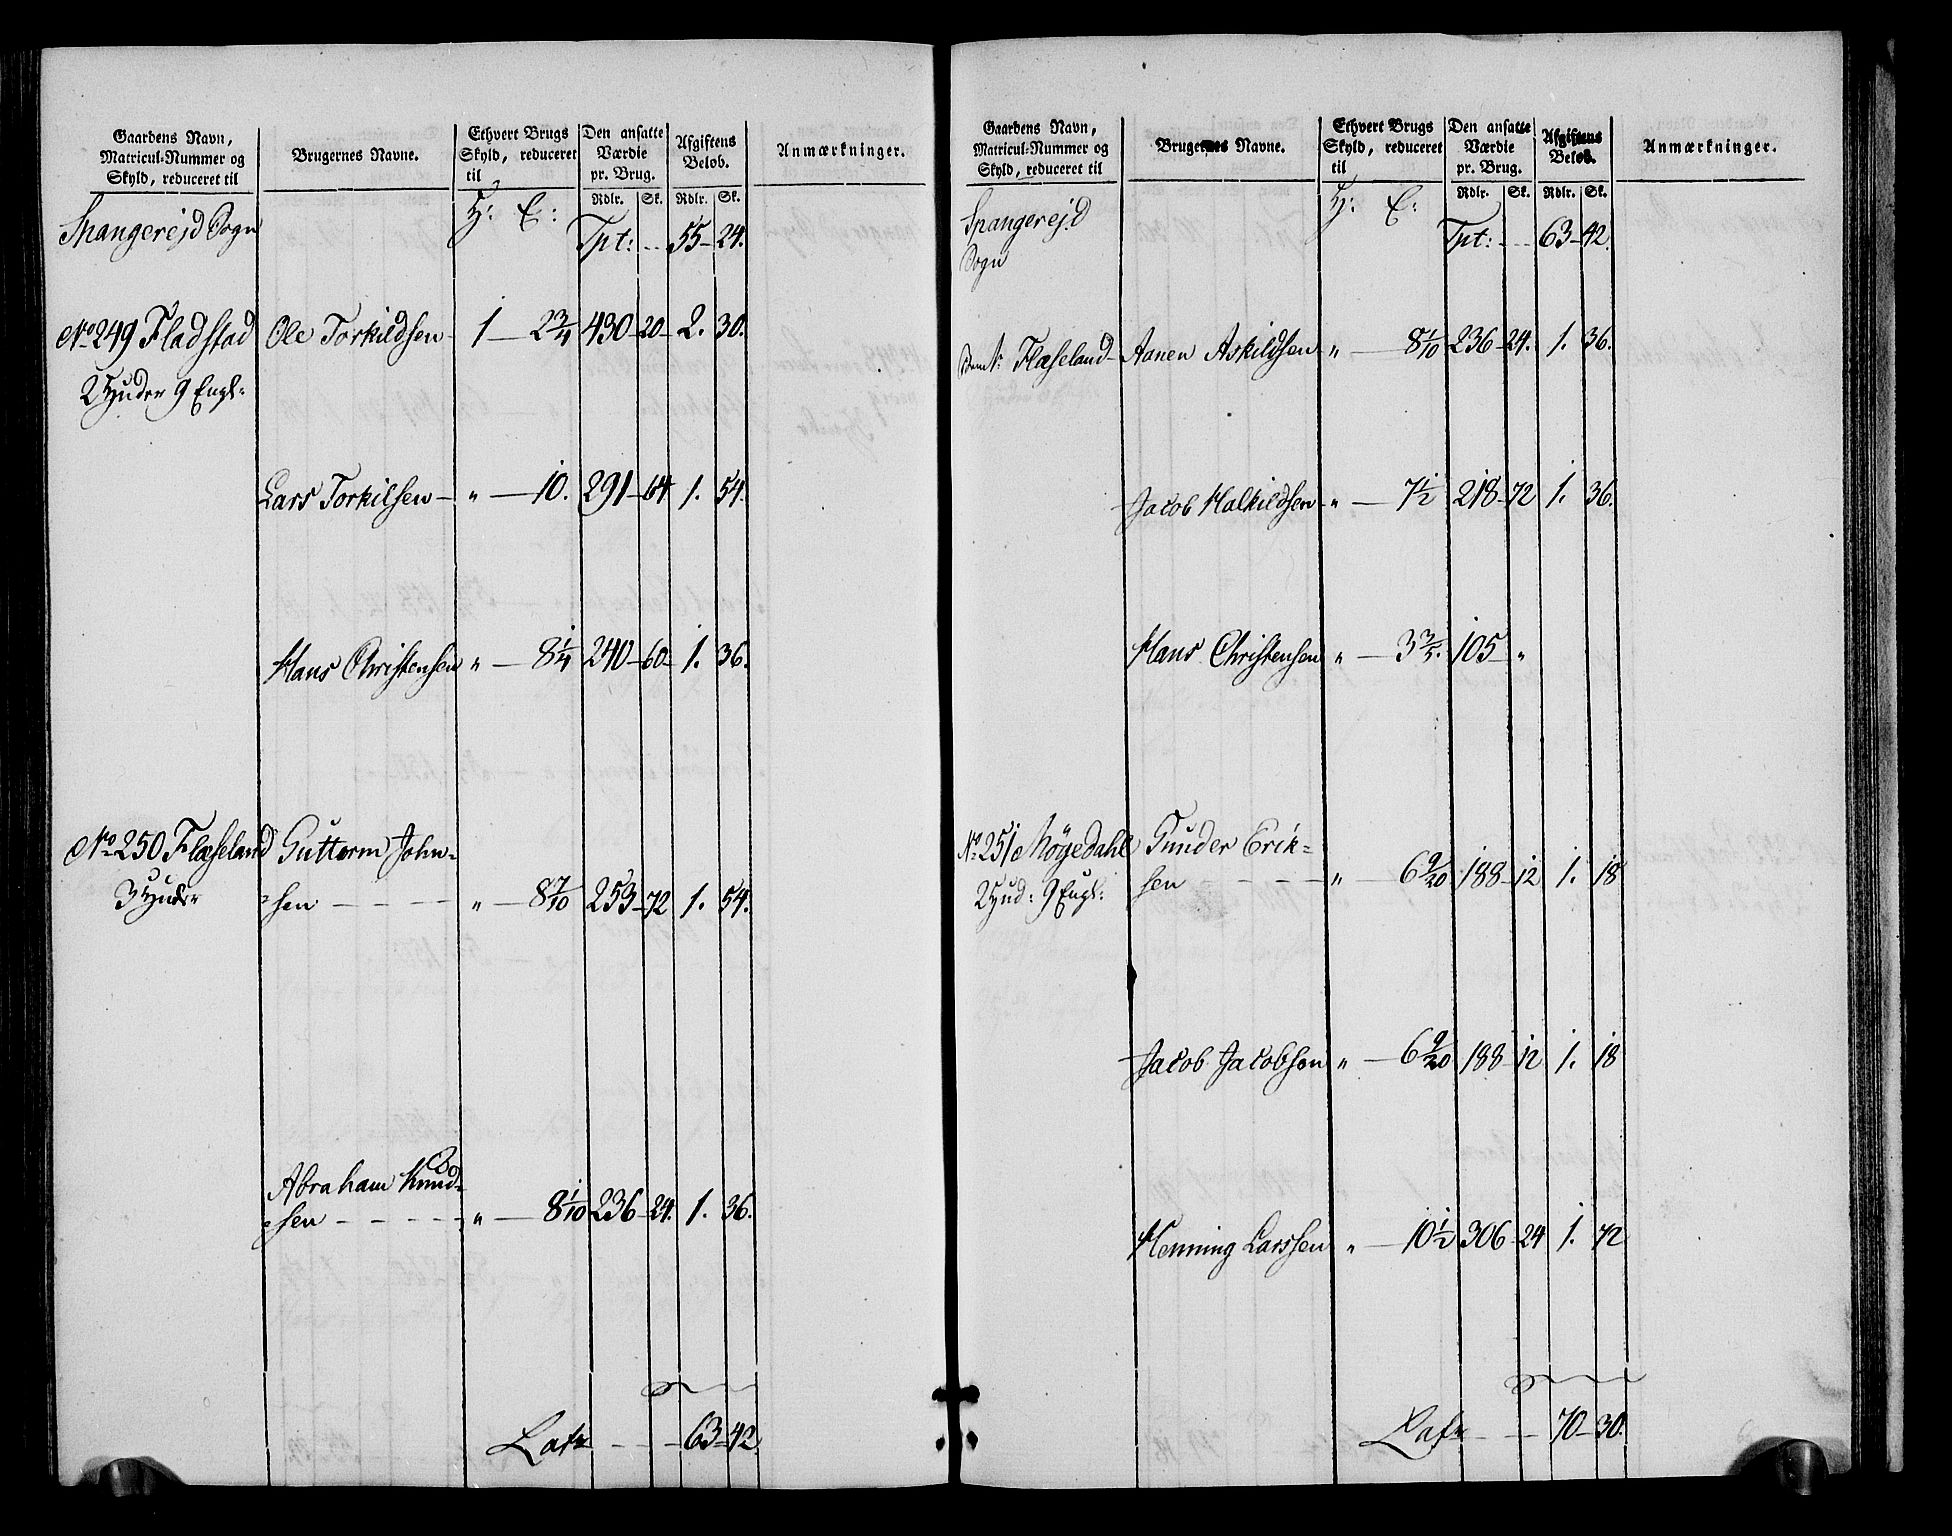 Gaardens Navn,
Matricul-Nummer og
Skyld, reduceret til
Brugernes Navne.
Ethvert Brugs
Skyld, reduceret
til
Den ansatte
Værdie
pr. Brug.
Afgiftens
Beløb.
Anmærkninger.
Rdlr. Sk. Rdlr. Sk.
Spangerejd Sogn H: E: Tpt: 55 24.
No 249 Fladstad Ole Torkildsen 1 2 3/4 430 20 2. 30.
2 Huder 9 Engl:
Lars Torkilsen " 10. 291 64 1. 54.
Hans Christensen " 8 1/4 240 60 1. 36.
No 250 Flæseland Guttorm John-
3 Huder sen " 8 7/10 253 72 1. 54.
Abraham Knud-
sen " 8 1/10 236 24. 1. 36.
Lats 63 42
Gaardens Navn,
Matricul-Nummer og
Skyld, reduceret til
Brugernes Navne.
Ethvert Brugs
Skyld, reduceret
til
Den ansatte
Værdie
pr. Brug.
Afgiftens
Beløb.
Anmærkninger.
Rdlr. Sk. Rdlr. Sk.
Spangerejd H: E: Tpt: 63 42.
Sogn
Flæseland Aanen Askildsen " 8 1/10 236 24. 1. 36.
Jacob Halkildsen " 7 1/2 218 72 1. 36.
Hans Christensen " 3 3/5. 105 "
No 251 Høyedahl Gunder Erik-
2 Hud: 9 Engl: sen " 6 9/20 188 12 1. 18
Jacob Jacobsen " 6 9/20 188 12 1. 18
Henning Larssen " 10 1/2 306 24 1. 72
Lats 70 30.